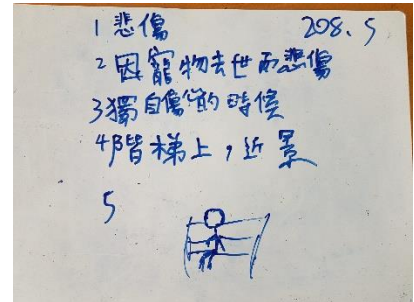 1 悲傷 208.5
2 因寵物去世而悲傷
3 獨自傷心的時候
4 階梯上，近景
5